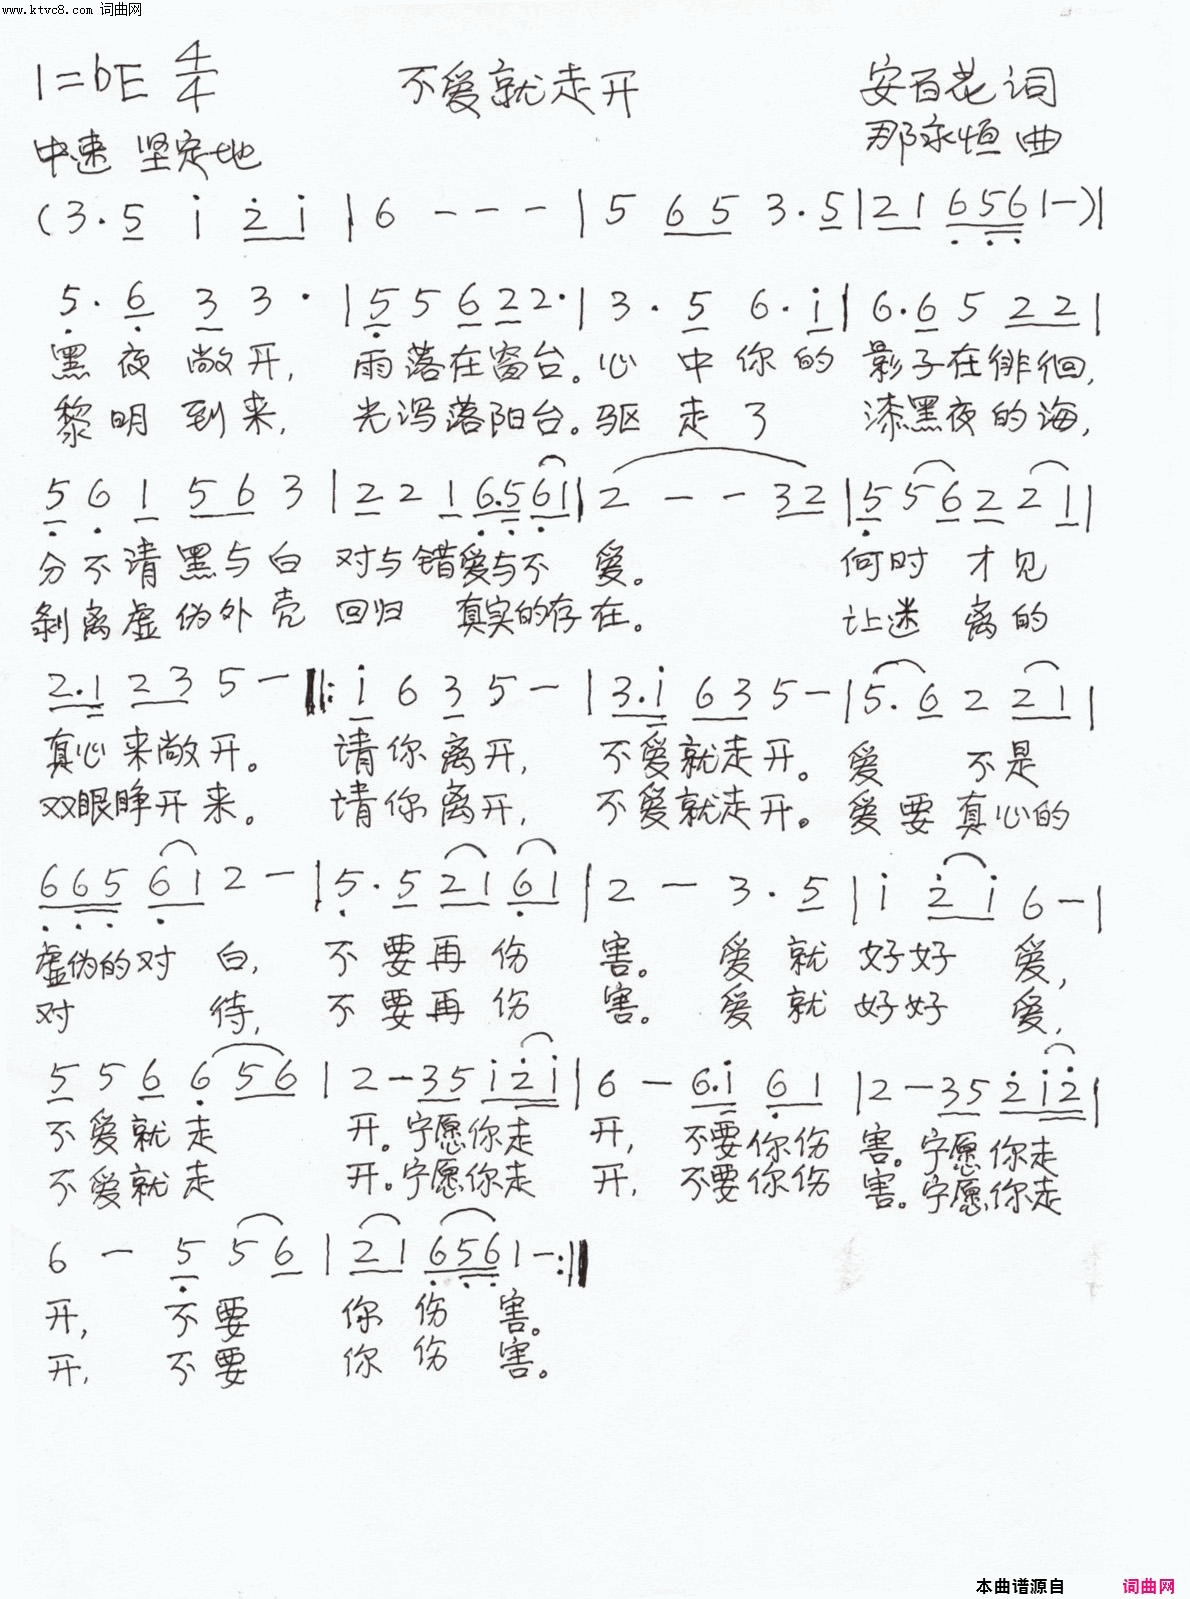 www.ktvc8.com 词曲网
1=bE 4/4 不爱就走开 安百花词
中速 坚定地 那永恒曲
(3·5 i 2 i | 6 - - - | 5 6 5 3·5 | 2 1 6 5 6 1 -) |
5·6 3 3· | 5 5 6 2 2· | 3·5 6·i | 6·6 5 2 2 |
黑夜敞开, 雨落在窗台。心中你的影子在徘徊,
黎明到来, 光泻落阳台。驱走了漆黑夜的海,
5 6 1 5 6 3 | 2 2 1 6·5 6 1 | 2 - - 3 2 | 5 5 6 2 2 1 |
分不清黑与白 对与错爱与不爱。 何时才见
剥离虚伪外壳 回归真实的存在。 让迷离的
2·1 2 3 5 - ‖: i 6 3 5 - | 3·i 6 3 5 - | 5·6 2 2 1 |
真心来敞开。 请你离开, 不爱就走开。爱 不是
双眼睁开来。 请你离开, 不爱就走开。爱要真心的
6 6 5 6 1 2 - | 5·5 2 1 6 1 | 2 - 3·5 | i 2 i 6 - |
虚伪的对白, 不要再伤害。 爱就好好爱,
对 待, 不要再伤害。 爱就好好爱,
5 5 6 6 5 6 | 2 - 3 5 i 2 i | 6 - 6·i 6 1 | 2 - 3 5 2 i 2 |
不爱就走 开。宁愿你走 开, 不要你伤害。宁愿你走
不爱就走 开。宁愿你走 开, 不要你伤害。宁愿你走
6 - 5 5 6 | 2 1 6 5 6 1 - :‖
开, 不要 你伤害。
开, 不要 你伤害。
本曲谱源自 词曲网